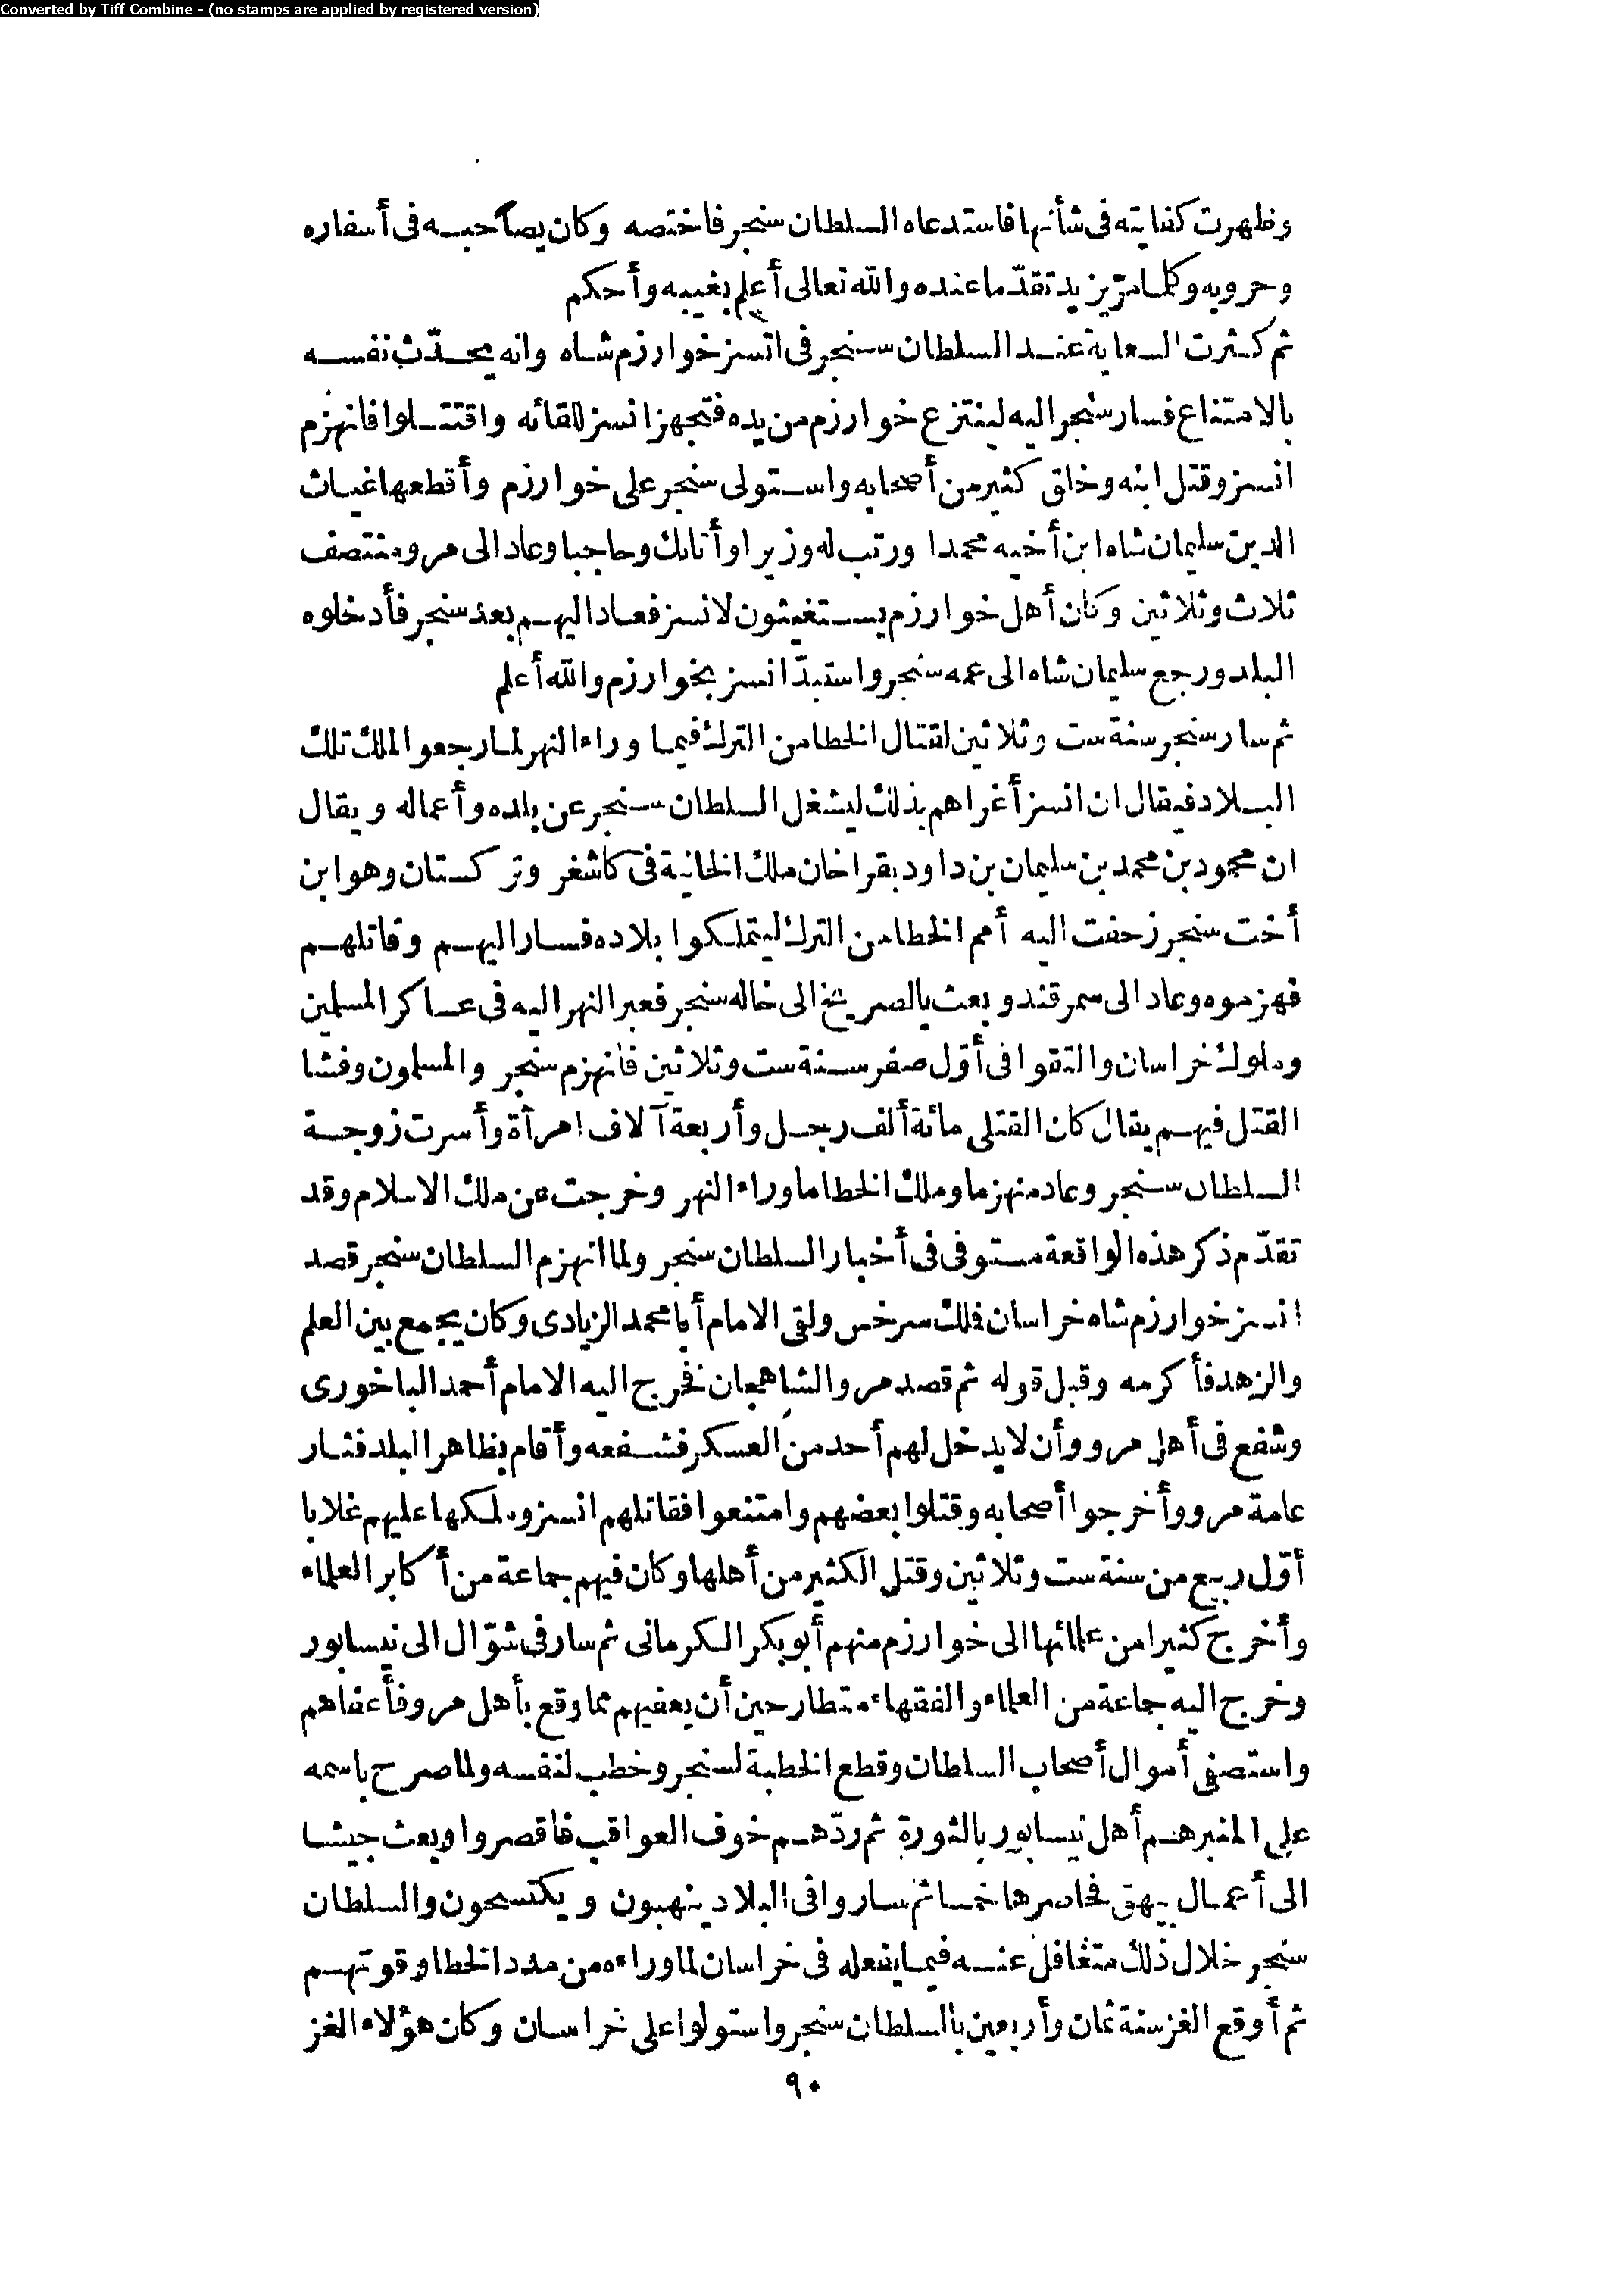 Converted by Tiff Combine - (no stamps are applied by registered version)
وظهرت كفايته فى شأنها فاستدعاه السلطان سنجر فاختصه وكان يصاحبه فى أسفاره
وحروبه وكلما مرّ يزيد تقدّما عنده والله تعالى أعلم بغيبه وأحكم
ثم كثرت السعاية عند السلطان سنجر فى اتسز خوارزم شاه وانه يحدّث نفسه
بالامتناع فسار سنجر اليه لينتزع خوارزم من يده فتجهز انسز للقائه واقتتلوا فانهزم
انسز وقتل ابنه وخلق كثير من أصحابه واستولى سنجر على خوارزم وأقطعها غياث
الدين سليمان شاه ابن أخيه محمدا ورتب له وزيرا وأتابك وحاجبا وعاد الى مرو منتصف
ثلاث وثلاثين وكان أهل خوارزم يستغيثون لانسز فعاد اليهم بعد سنجر فأدخلوه
البلد ورجع سليمان شاه الى عمه سنجر واستبدّ انسز بخوارزم والله أعلم
ثم سار سنجر سنة ست وثلاثين لقتال الخطا من الترك فيما وراء النهر لما رجعوا لملك تلك
البلاد فيقال ان انسز أغراهم بذلك ليشغل السلطان سنجر عن بلده وأعماله ويقال
ان محمود بن محمد بن سليمان بن داود بقراخان ملك الخانية فى كاشغر وتركستان وهو ابن
أخت سنجر زحفت اليه أمم الخطا من الترك ليتملكوا بلاده فسار اليهم وقاتلهم
فهزموه وعاد الى سمرقند وبعث بالصريخ الى خاله سنجر فعبر النهر اليه فى عساكر المسلمين
وملوك خراسان والتقوا فى أوّل صفر سنة ست وثلاثين فانهزم سنجر والمسلمون وفشا
القتل فيهم يقال كان القتلى مائة ألف رجل وأربعة آلاف امرأة وأسرت زوجة
السلطان سنجر وعاد منهزما وملك الخطا ما وراء النهر وخرجت عن ملك الاسلام وقد
تقدّم ذكر هذه الواقعة مستوفى فى أخبار السلطان سنجر ولما انهزم السلطان سنجر قصد
انسز خوارزم شاه خراسان فملك سرخس ولقى الامام أبا محمد الزيادى وكان يجمع بين العلم
والزهد فأكرمه وقبل قوله ثم قصد مرو الشاهجان فخرج اليه الامام أحمد الباخورى
وشفع فى أهل مرو وأن لا يدخل لهم أحد من العسكر فشفعه وأقام بظاهر البلد فثار
عامة مرو وأخرجوا أصحابه وقتلوا بعضهم وامتنعوا فقاتلهم انسز وملكها عليهم غلابا
أوّل ربيع من سنة ست وثلاثين وقتل الكثير من أهلها وكان فيهم جماعة من أكابر العلماء
وأخرج كثيرا من علمائها الى خوارزم منهم أبو بكر الكرمانى ثم سار فى شوّال الى نيسابور
وخرج اليه جماعة من العلماء والفقهاء متطارحين أن يعفيهم مما وقع بأهل مرو فأعفاهم
واستصفى أموال أصحاب السلطان وقطع الخطبة لسنجر وخطب لنفسه ولما صرح باسمه
على المنبر هم أهل نيسابور بالثورة ثم ردّهم خوف العواقب فاقصروا وبعث جيشا
الى أعمال بيهق فحاصرها خمسا ثم ساروا فى البلاد ينهبون ويكتسحون والسلطان
سنجر خلال ذلك متغافل عنه فيما يفعله فى خراسان لما وراءه من مدد الخطا وقوتهم
ثم أوقع الغز سنة ثمان وأربعين بالسلطان سنجر واستولوا على خراسان وكان هؤلاء الغز
٩٠